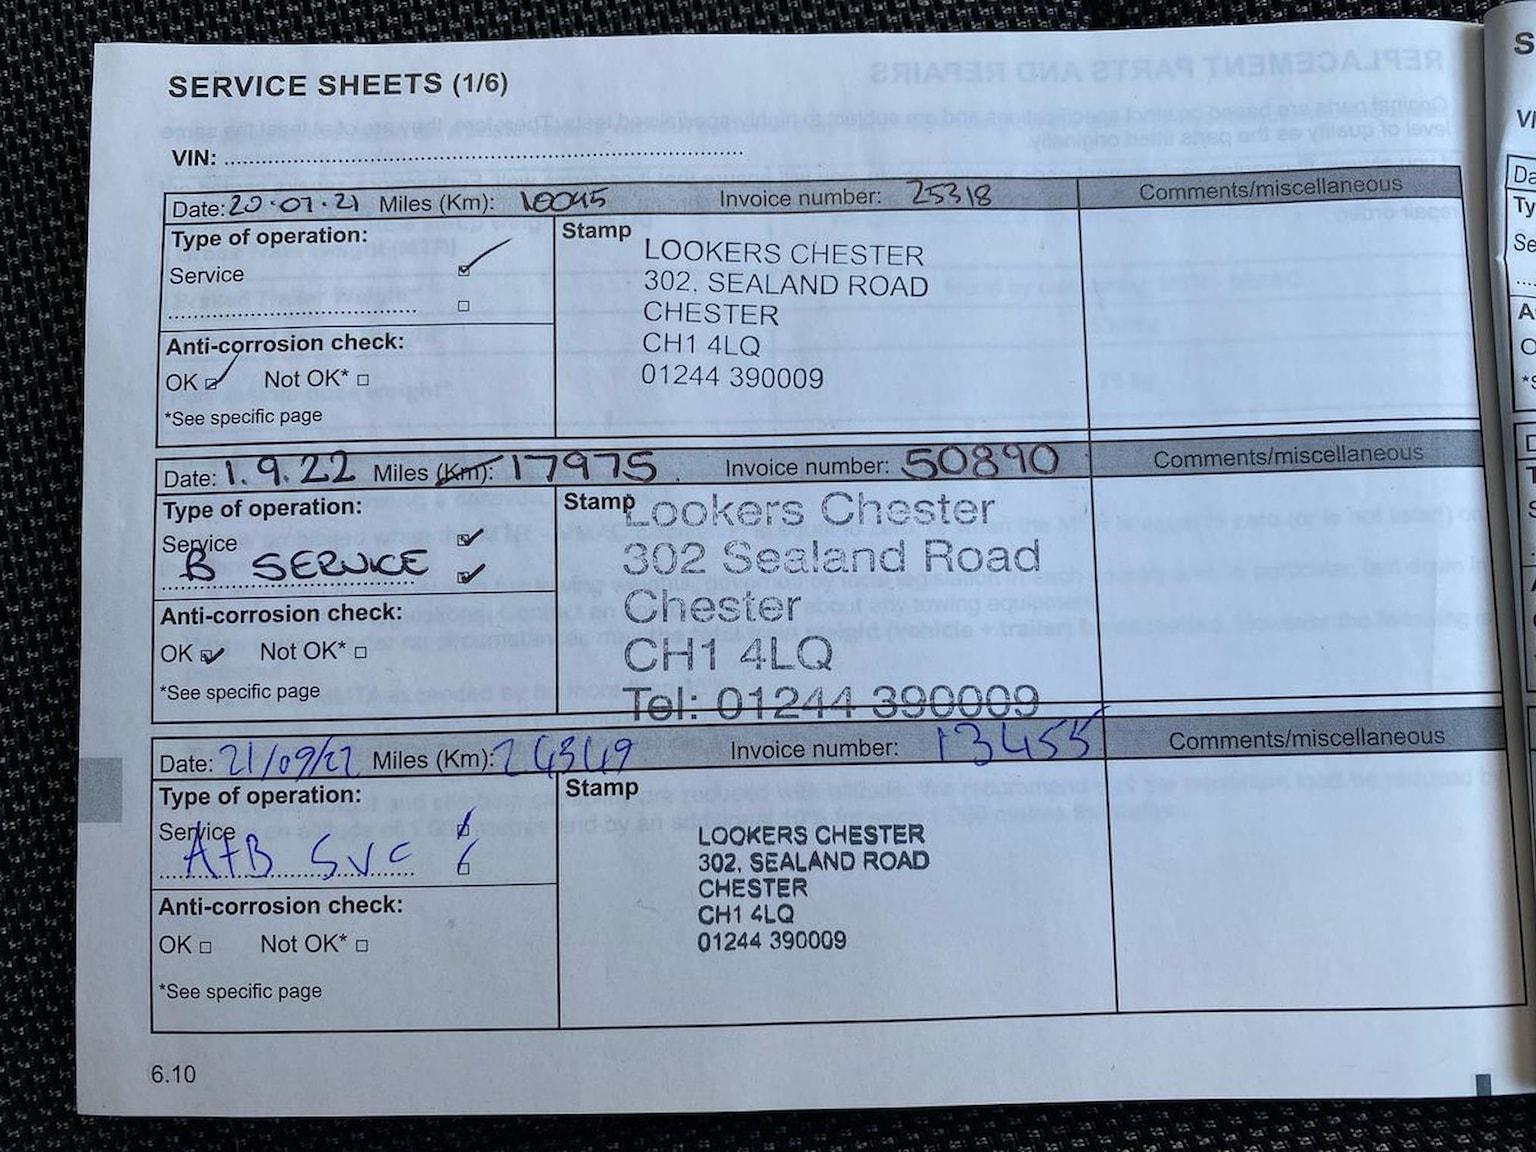 SERVICE SHEETS (1/6)
VIN:
Date: 20.07.21 Miles (Km): 10045 Invoice number: 25318 Comments/miscellaneous
Type of operation:
Service
Stamp
LOOKERS CHESTER
302, SEALAND ROAD
CHESTER
CH1 4LQ
01244 390009
Anti-corrosion check:
OK Not OK*
*See specific page
Date: 1.9.22 Miles (Km): 17975 Invoice number: 50890 Comments/miscellaneous
Type of operation:
Service
B SERVICE
Stamp
Lookers Chester
302 Sealand Road
Chester
CH1 4LQ
Tel: 01244 390009
Anti-corrosion check:
OK Not OK*
*See specific page
Date: Miles (Km): 24349 Invoice number: 13455 Comments/miscellaneous
Type of operation:
Service
A+B SVC
Stamp
LOOKERS CHESTER
302, SEALAND ROAD
CHESTER
CH1 4LQ
01244 390009
Anti-corrosion check:
OK Not OK*
*See specific page
6.10